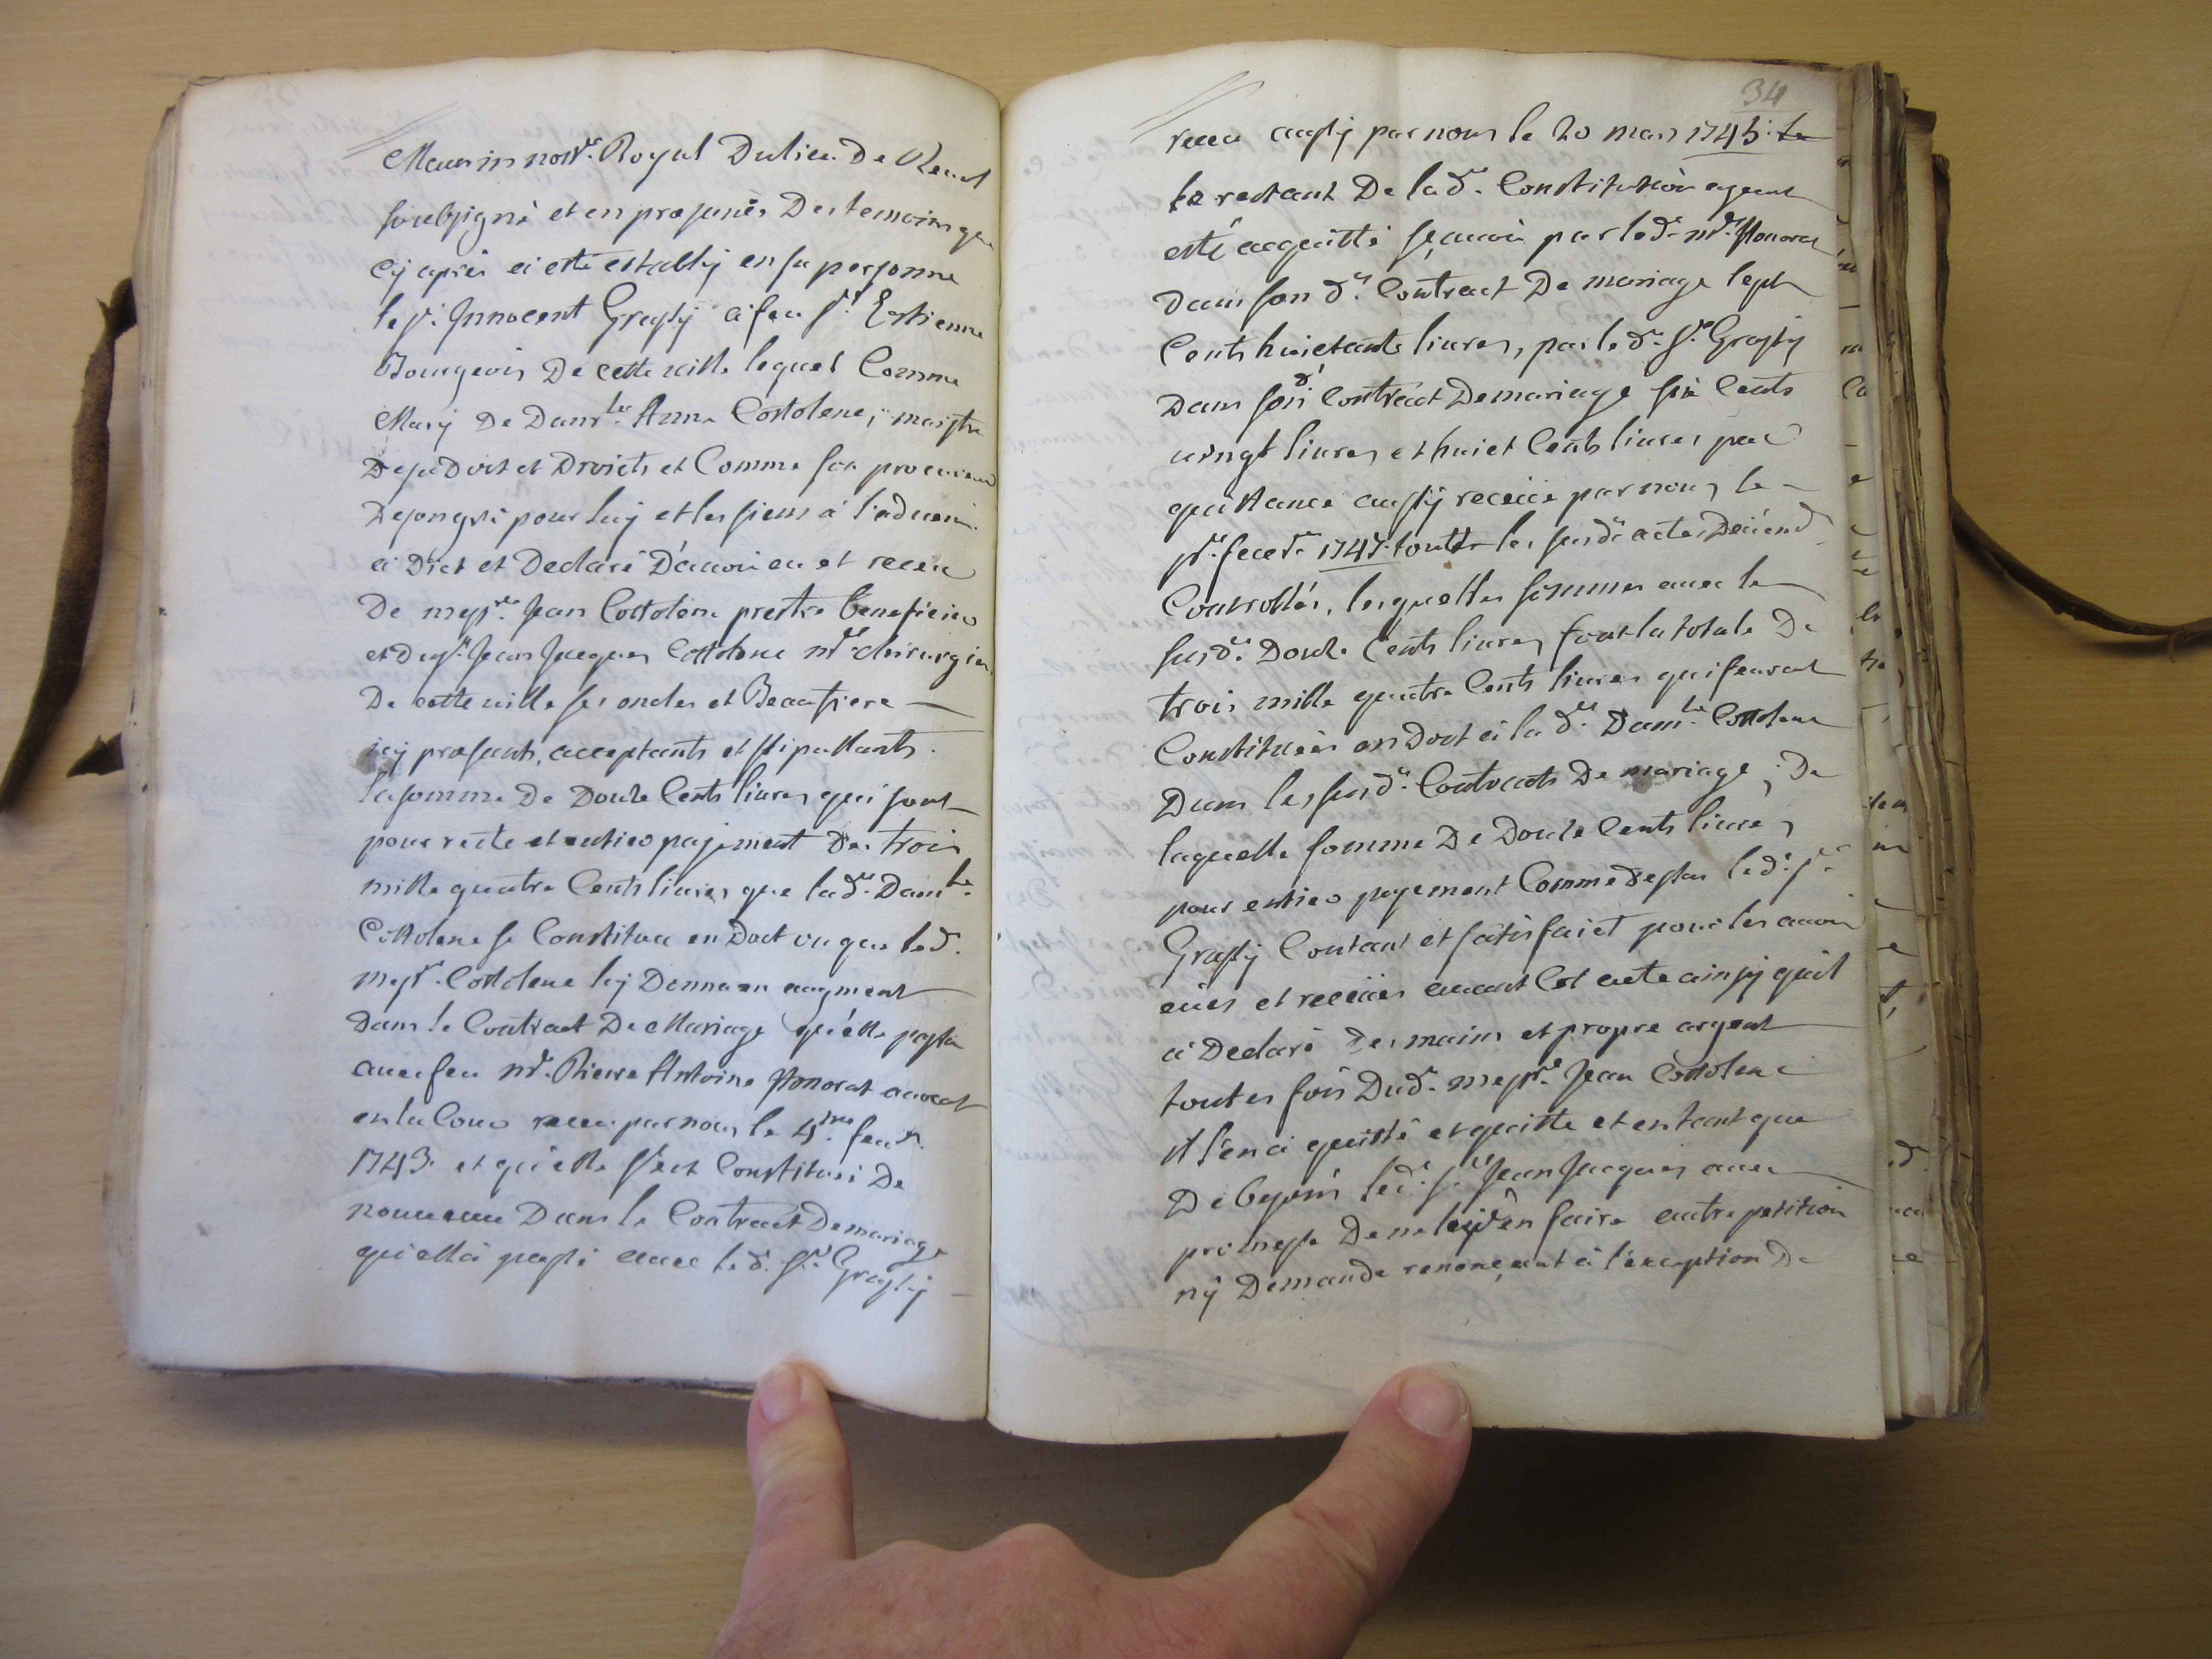 Maurin not.re Royal Du lieu De Reust
soubsigné et en presance Des temoins que
cy aprés a esté estably en sa personne
le s.r Innocent Grassy à feu s.r Estienne
Bourgeois De cette ville lequel Comme
Mary De Dam.lle Anne Costolene, maistre
De sa Doit et Droicts et Comme son procureur
De son gré pour luy et les siens à l'advenir
à Dict et Declaré D'avoir eu et receu
De mess.re Jean Costolene prestre beneficier
et De s.r Jean Jacques Costolene m.e chirurgien
De cette ville ses oncles et Beaufrere
icy presants, acceptants et stipullants
la somme De Douze Cents livres qui sont
pour reste et entier payement Des trois
mille quatre Cents livres que lad.e Dam.lle
Costolene se Constitua en Dot ou que led.
mess.re Costolene luy Donna en augment
dans le Contract De Mariage qu'elle passa
avec feu m.e Pierre Antoine Honorat avocat
en la Cour receu par nous le 4.me fevr.
1743. et qu'elle s'est Constituée De
nouveau Dans le Contract De mariage
qu'ell'à passé avec led. s.r Grassy
34
receu aussy par nous le 20 mars 1745. Le
le restant De lad.e Constitution ayant
esté acquitté sçavoir par led. m.e Honorat
dans son d.t Contract De mariage sept
Cents huictante livres, par led. s.r Grassy
Dans son d.t Contract De mariage six Cents
vingt livres et huict Cents livres par
quittance aussy receüe par nous le
p.r fevr. 1747. touts les susd.ts actes Deüem.t
Controllés, lesquelles sommes avec les
susd.es Douze Cents livres font la totale De
trois mille quatre Cents livres qui feurent
Constituées en Dot à la d.e Dam.lle Costolene
Dans les susd.ts Contracts De mariage; De
laquelle somme De Douze Cents livres
pour entier payement Comme dessus led. s.r
Grassy Contant et satisfaict pour les avoir
eües et receües avant Cet acte ainsy qu'il
à Declaré Des mains et propre argent
toutes fois Dud. mess.re Jean Costolene
il l'en à quitté et quitte et en tant que
De besoin led. s.r Jean Jacques avec
promesse De ne leur en faire autre petition
ny Demande renonçant à l'exception De